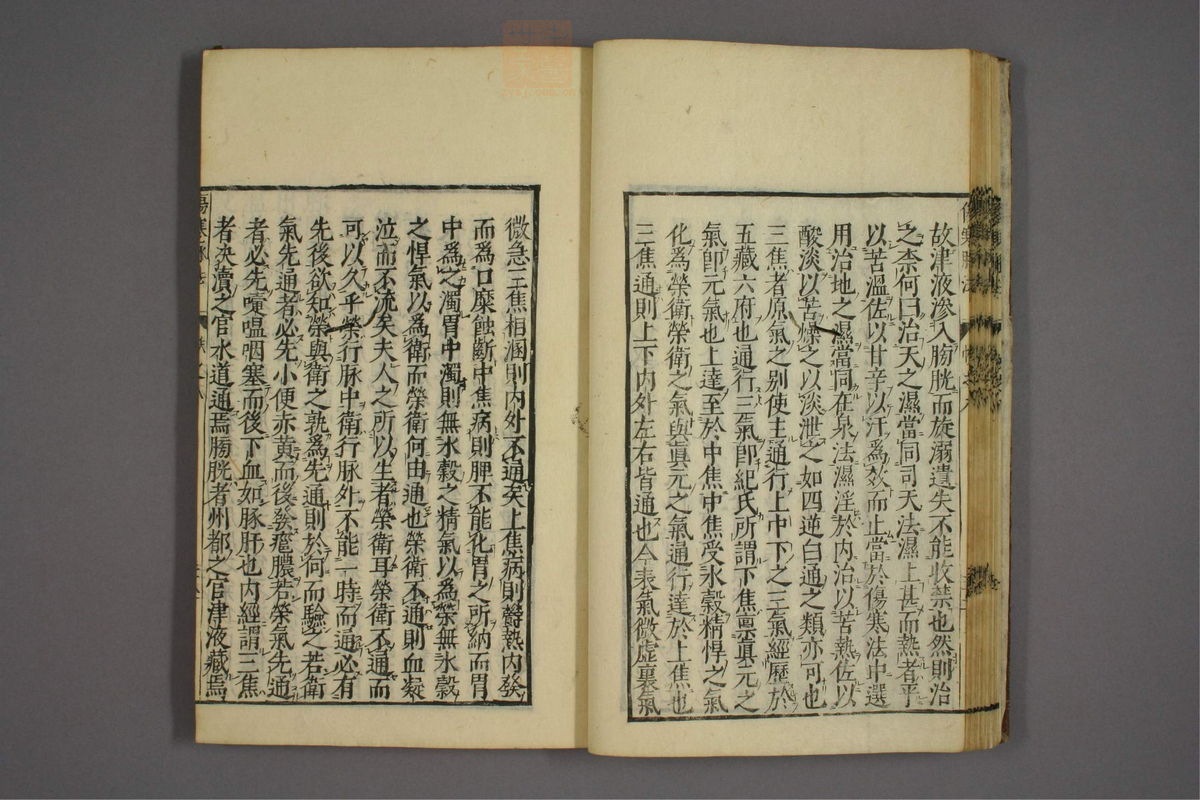 故津液滲入膀胱而旋溺遺失不能收禁也然則治
之柰何曰治天之濕當同司天法濕上甚而熱者平
以苦溫佐以甘辛以汗爲效而止當於傷寒法中選
用治地之濕當同在泉法濕淫於内治以苦熱佐以
酸淡以苦燥之以淡泄之如四逆白通之類亦可也
三焦者原氣之別使主通行上中下之三氣經歷於
五藏六府也通行三氣卽紀氏所謂下焦禀眞元之
氣卽元氣也上達至於中焦中焦受水穀精悍之氣
化爲榮衛榮衛之氣與眞元之氣通行達於上焦也
三焦通則上下内外左右皆通也今表氣微虛裏氣
微急三焦相溷則内外不通矣上焦病則欝熱内發
而爲口糜蝕斷中焦病則脾不能化胃之所納而胃
中爲之濁胃中濁則無水穀之精氣以爲榮無水穀
之悍氣以爲衛而榮衛何由通也榮衛不通則血凝
泣而不流矣夫人之所以生者榮衛耳榮衛不通而
可以久乎榮行脉中衛行脉外不能一時而通必有
先後欲知榮與衛之孰爲先通則於何而驗之若衛
氣先通者必先小便赤黄而後發瘡膿若榮氣先通
者必先嚏嗢咽塞而後下血如豚肝也内經謂三焦
者決瀆之官水道通焉膀胱者州都之官津液藏焉